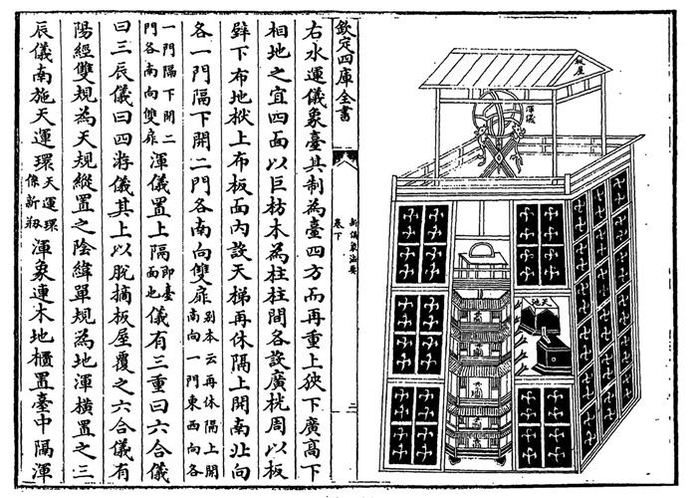 板屋
渾儀
天池
欽定四庫全書
新儀象法要
卷下
二
右水運儀象臺其制為臺四方而再重上狹下廣高下
相地之宜四面以巨枋木為柱柱間各設廣桄周以板
壁下布地栿上布板面内設天梯再休隔上開南北向
各一門隔下開二門各南向雙扉别本云再休隔上開南向一門東西向各
一門隔下開二門各南向雙扉渾儀置上隔即臺面也儀有三重曰六合儀
曰三辰儀曰四游儀其上以脫摘板屋覆之六合儀有
陽經雙規為天規縱置之陰緯單規為地渾橫置之三
辰儀南施天運環天運環新渾象連木地櫃置臺中隔渾